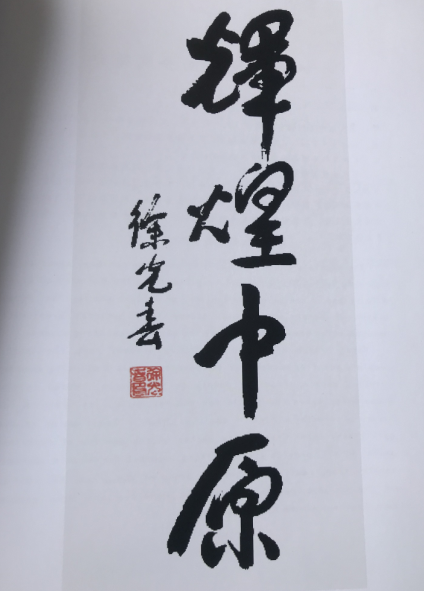 輝煌中原
徐光春